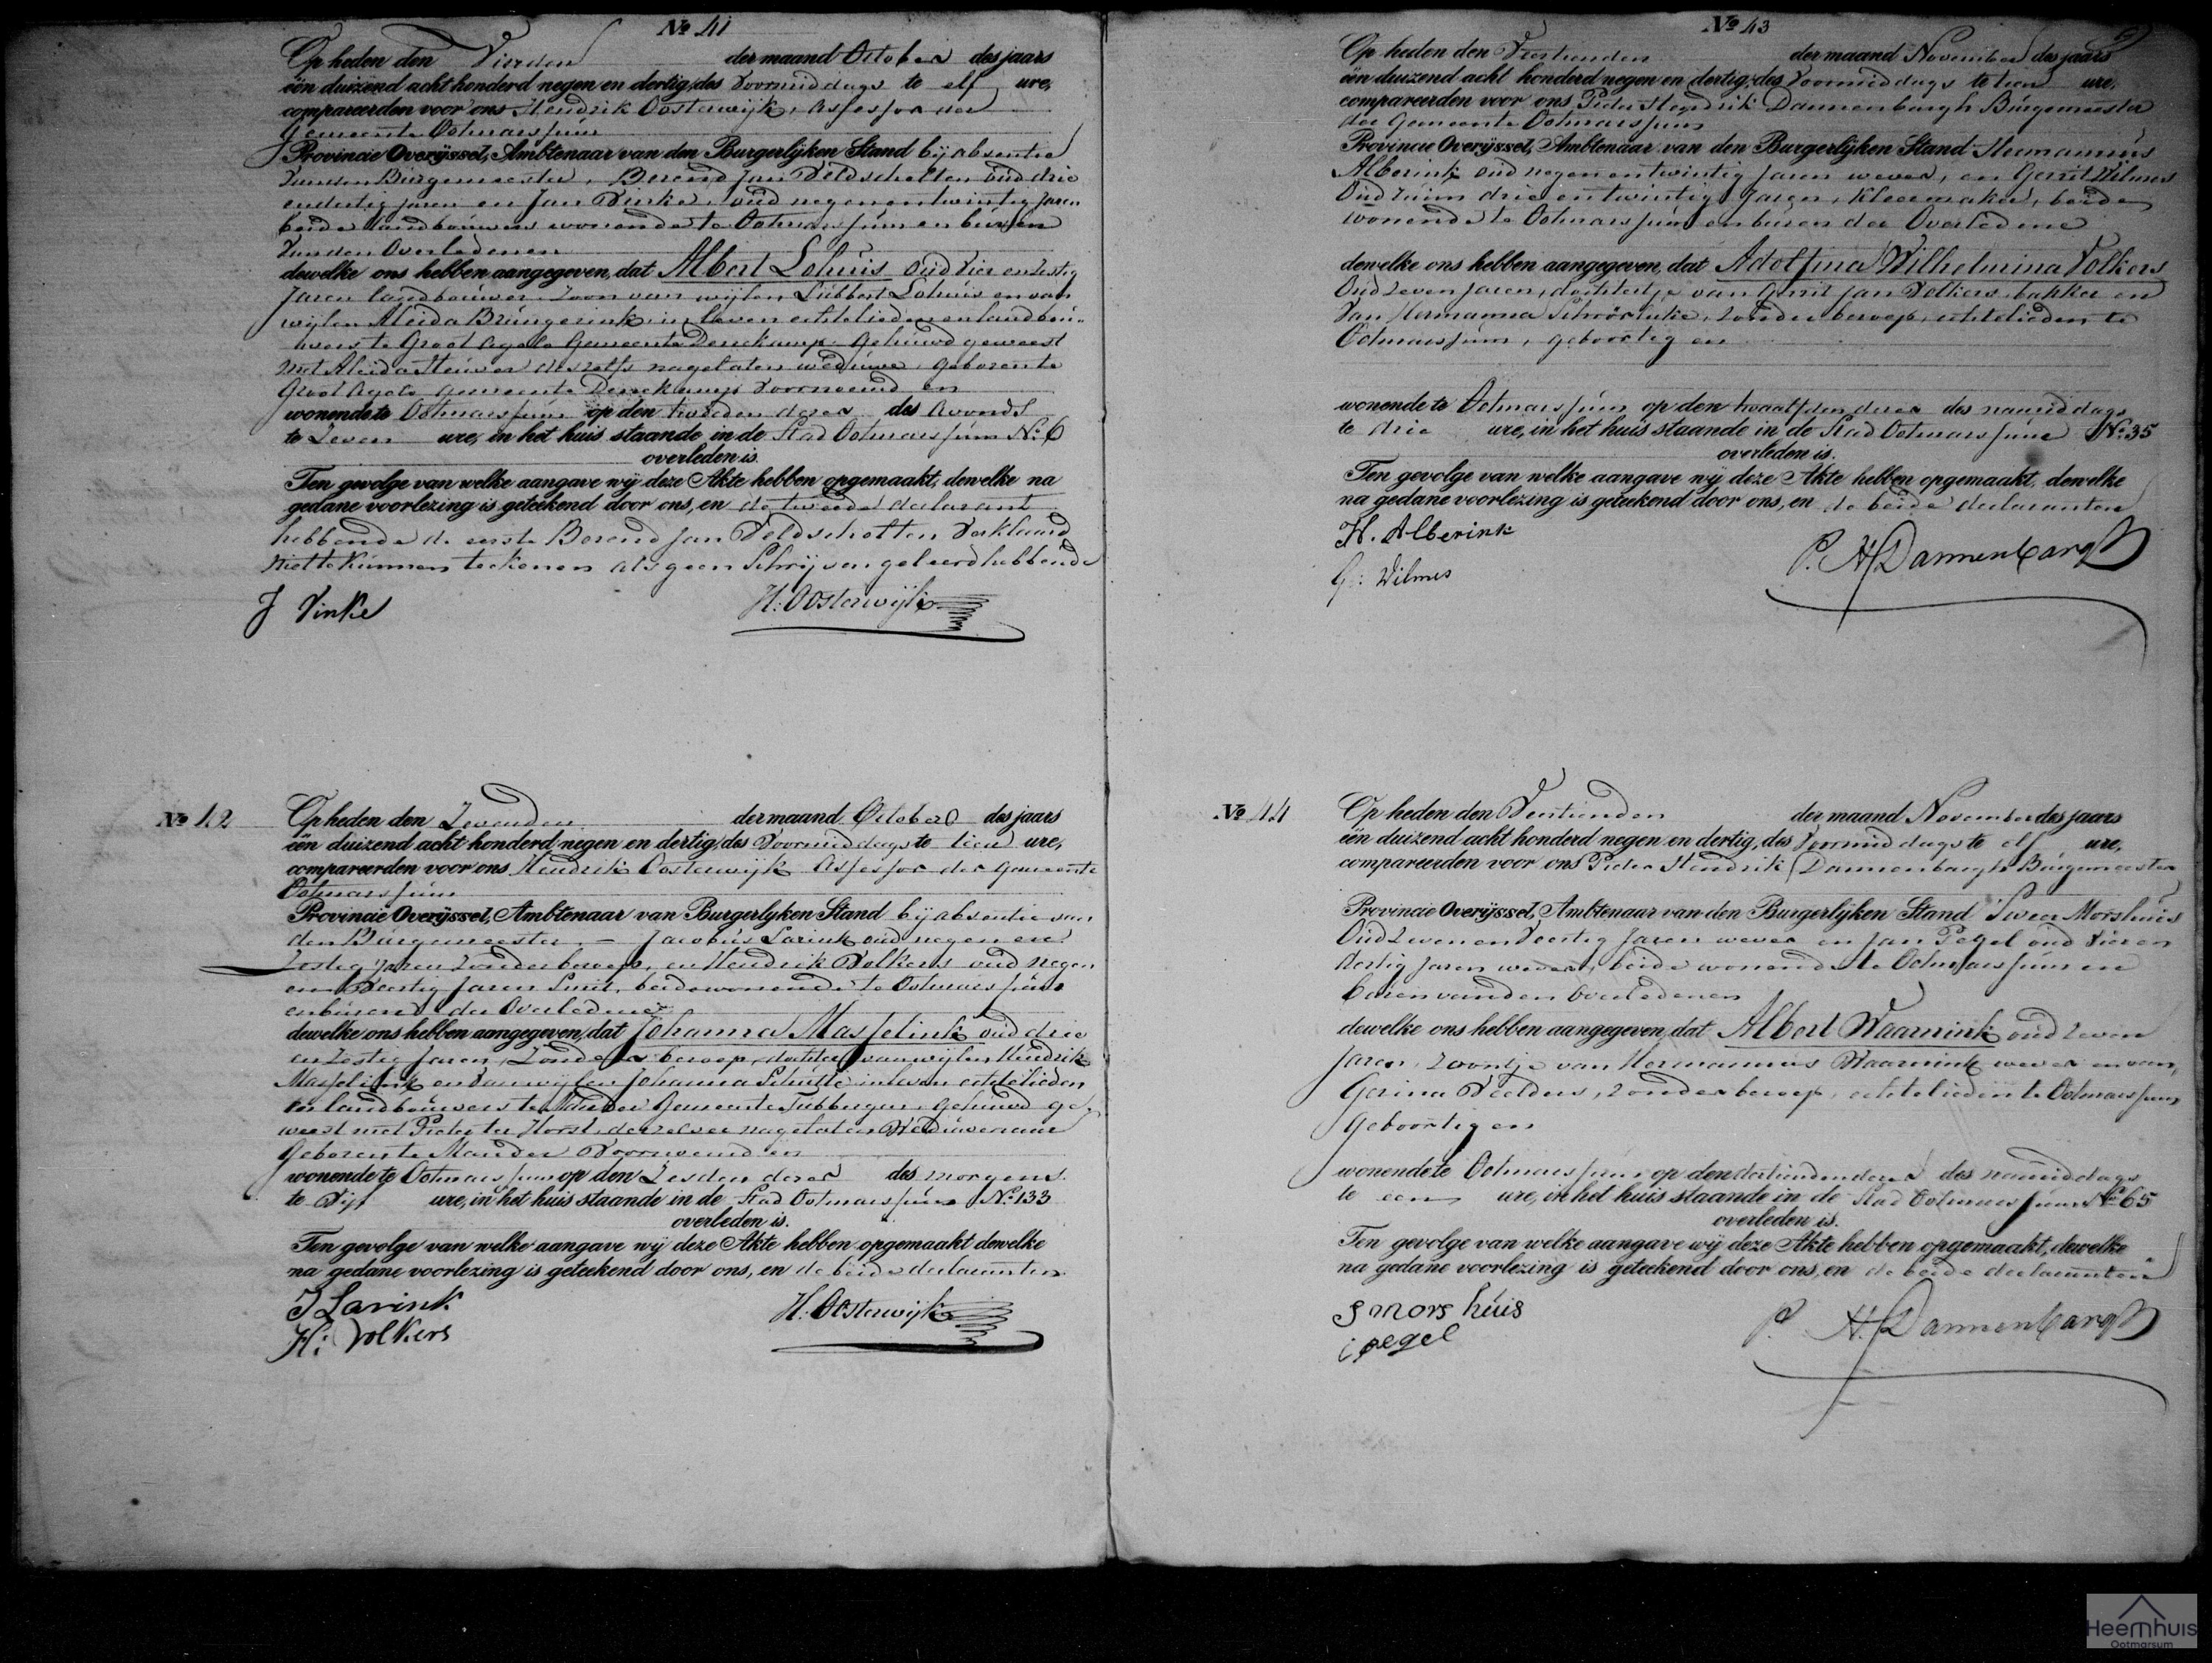 No 41
Op heden den Vierden der maand October des jaars
één duizend acht honderd negen en dertig, des Voormiddags te elf ure,
compareerden voor ons Hendrik Oosterwijk, Assessor der
Gemeente Ootmarssum
Provincie Overijssel, Ambtenaar van den Burgerlijken Stand bij absentie
van den Burgemeester, Berend Jan Veldscholten oud drie
en dertig jaren en Jan Vinke, oud negenentwintig jaren
beide landbouwers wonende te Ootmarssum en buren
van den Overledenen
dewelke ons hebben aangegeven, dat Albert Lohuis oud vier en zestig
jaren landbouwer, Zoon van wijlen Lubbert Lohuis en van
wijlen Aleida Brüngerink in leven echtelieden en landbou-
wers te Groot Agelo Gemeente Denekamp. Gehuwd geweest
met Aleida Heuver deszelfs nagelaten weduwe, geboren te
Groot Agelo gemeente Denekamp voornoemd en
wonende te Ootmarssum op den tweeden dezer des Avonds
te Zeven ure, in het huis staande in de Stad Ootmarssum No 6
overleden is.
Ten gevolge van welke aangave wij deze Akte hebben opgemaakt, dewelke na
gedane voorlezing is geteekend door ons, en de tweede declarant
hebbende de eerste Berend Jan Veldscholten verklaard
niet te kunnen teekenen als geen Schrijven geleerd hebbende
J Vinke H: Oosterwijk
No 42
Op heden den Zevenden der maand October des jaars
één duizend acht honderd negen en dertig, des Voormiddags te tien ure,
compareerden voor ons Hendrik Oosterwijk Assessor der Gemeente
Ootmarssum
Provincie Overijssel, Ambtenaar van Burgerlyken Stand bij absentie van
den Burgemeester. — Jacobus Larink oud negen en
Zestig jaren Zonder beroep, en Hendrik Volkers oud negen
en Veertig jaren Smit, beide wonende te Ootmarssum
en buren der Overledene
dewelke ons hebben aangegeven, dat Johanna Masselink oud drie
en Zestig jaren, Zonder beroep, dochter van wijlen Hendrik
Masselink en van wijlen Johanna Schutte in leven echtelieden
en landbouwers te Mander Gemeente Tubbergen, gehuwd ge-
weest met Pieter ter Horst, derzelver nagelaten Weduwenaar
Geboren te Mander Voornoemd en
wonende te Ootmarssum op den Zesden dezer des morgens
te Vijf ure, in het huis staande in de Stad Ootmarssum No 133
overleden is.
Ten gevolge van welke aangave wij deze Akte hebben opgemaakt dewelke
na gedane voorlezing is geteekend door ons, en de beide declaranten
J Larink H. Oosterwijk
H: Volkers
No 43
Op heden den Veertienden der maand November des jaars
één duizend acht honderd negen en dertig, des Voormiddags te tien ure,
compareerden voor ons Pieter Hendrik Dannenbargh Burgemeester
der Gemeente Ootmarssum
Provincie Overijssel, Ambtenaar van den Burgerlijken Stand Hermannus
Alberink oud negen en twintig jaren wever, en Gerrit Wilmes
Oud ruim drie en twintig jaren, kleermaker, beide
wonende te Ootmarssum en buren der Overledene
dewelke ons hebben aangegeven, dat Adolfina Wilhelmina Volkers
Oud Zeven jaren, dochtertje van Gerrit Jan Volkers, bakker en
Van Hermanna Schrörinke, zonder beroep, echtelieden te
Ootmarssum, geboortig en
wonende te Ootmarssum op den twaalfden dezer des namiddags
te drie ure, in het huis staande in de Stad Ootmarssum No. 35
overleden is.
Ten gevolge van welke aangave wij deze Akte hebben opgemaakt, dewelke
na gedane voorlezing is geteekend door ons, en de beide declaranten
H. Alberink P. H Dannenbargh
G: Wilmes
No 44
Op heden den Veertienden der maand November des jaars
één duizend acht honderd negen en dertig, des Voormiddags te elf ure,
compareerden voor ons Pieter Hendrik Dannenbargh Burgemeester
Provincie Overijssel, Ambtenaar van den Burgerlijken Stand Sweer Morshuis
Oud Zeven en Veertig jaren wever en Jan Pegel oud Vier en
dertig jaren wever, beide wonende te Ootmarssum en
buren van den Overledenen
dewelke ons hebben aangegeven, dat Albert Waarnink oud Zeven
jaren, Zoontje van Hermannus Waarnink wever en van
Gerina Velders, zonder beroep, echtelieden te Ootmarssum
Geboortig en
wonende te Ootmarssum op den dertienden dezer des namiddags
te een ure, in het huis staande in de Stad Ootmarssum No 65
overleden is.
Ten gevolge van welke aangave wij deze Akte hebben opgemaakt, dewelke
na gedane voorlezing is geteekend door ons, en de beide declaranten
S Morshuis P. H. Dannenbargh
i pegel
Heemhuis
Ootmarsum